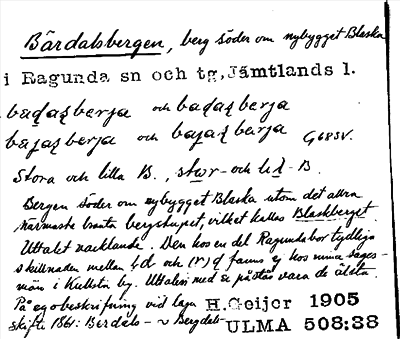 Bärdalsbergen, berg söder om nybygget Blaska
i Ragunda sn och tg, Jämtlands l.
och
och
G685V.
Stora och lilla B., och B.
Bergen söder om nybygget Blaska utom det allra
närmaste branta bergstupet, vilket kallas Blaskberget.
Uttalet vacklande. Den hos en del Ragundabor tydliga
skillnaden mellan och fanns ej hos mina sages-
män i Kullsta by. Uttalen med påstås vara de äldsta.
På egobeskrifning vid laga
skifte 1861: Berdals- ~ Bergdals-
H.Geijer 1905
ULMA 508:38